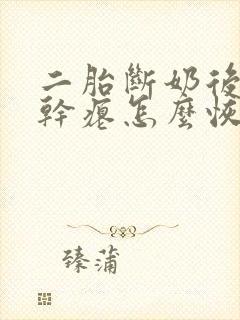 二胎斷奶後
幹癟怎麼恢
臻蒲